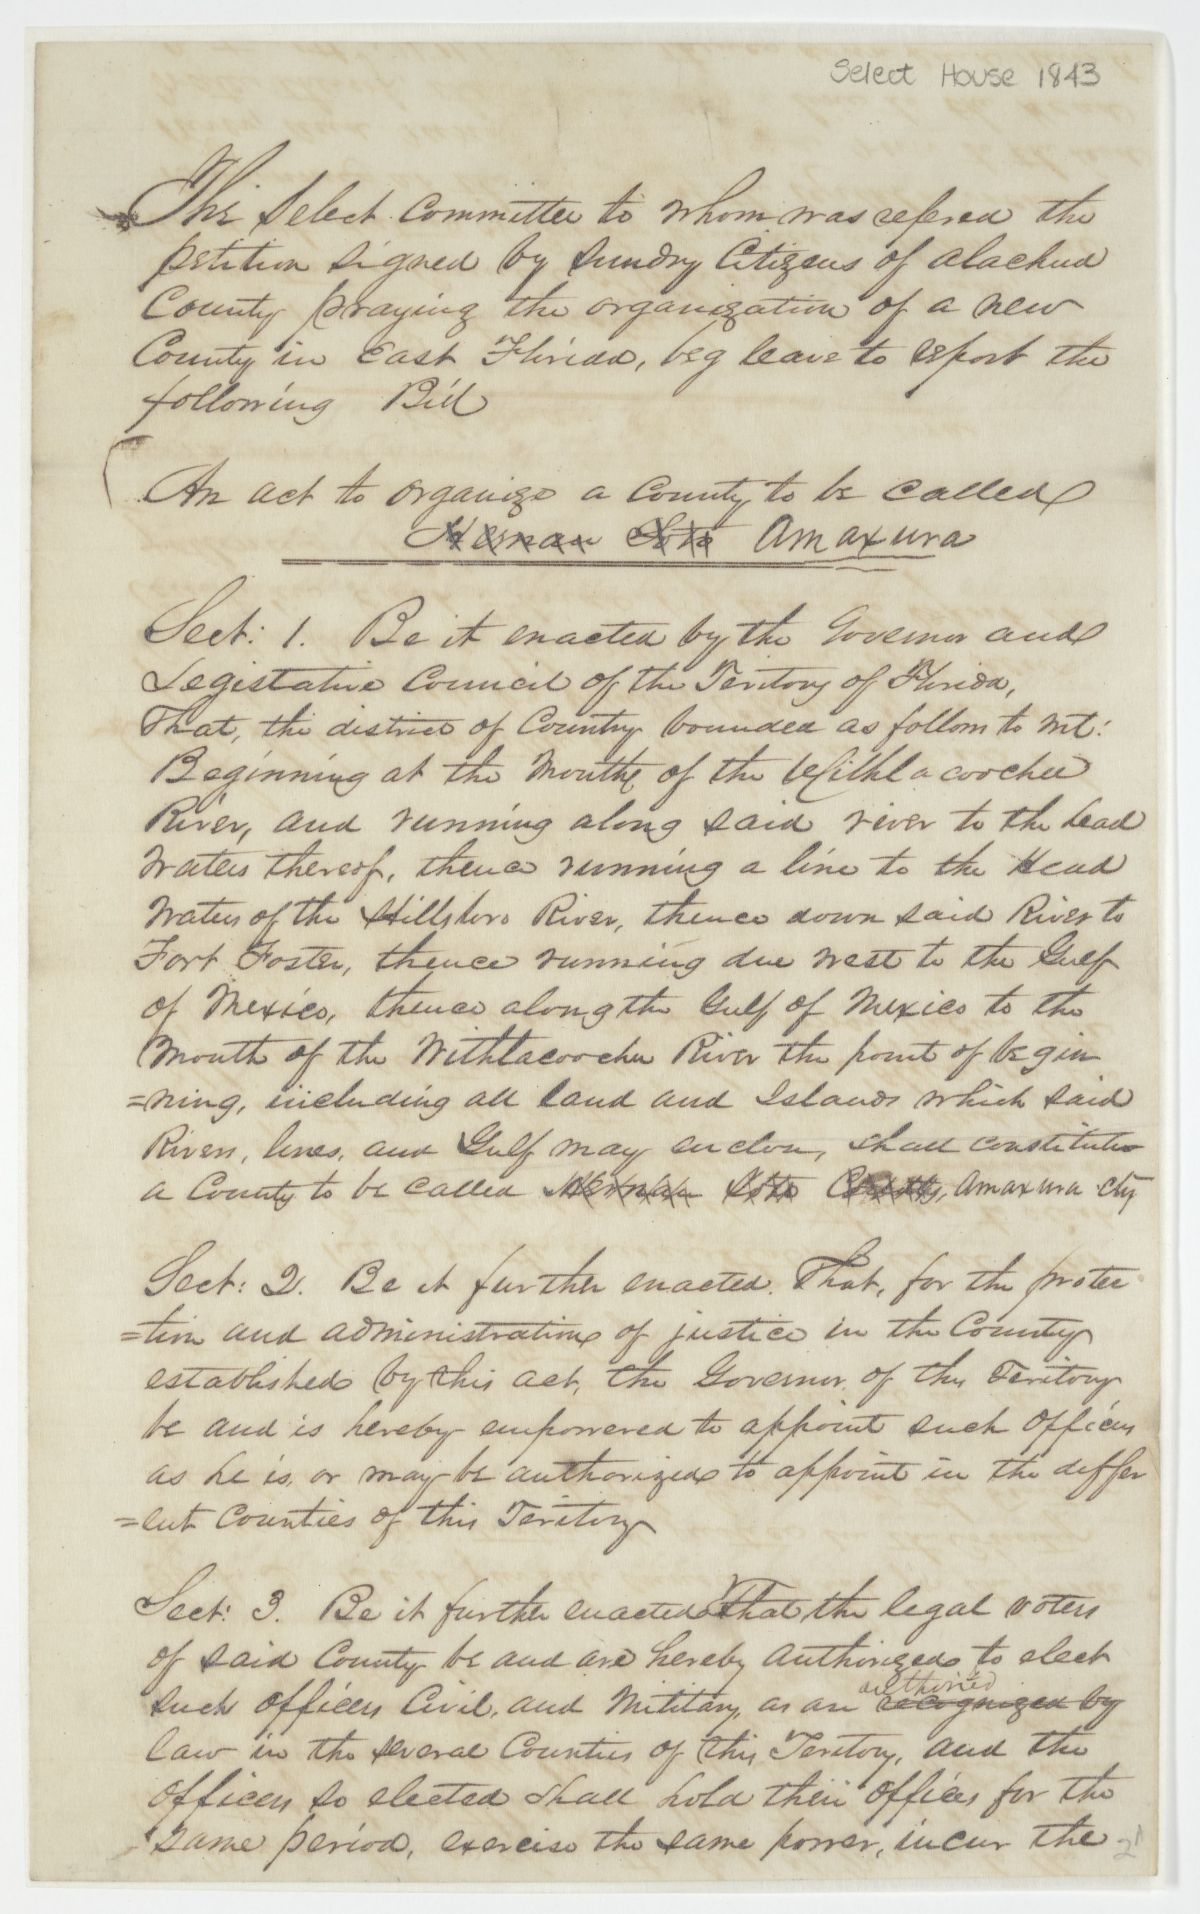 Select House 1843
The Select Committee to whom was refered the
petition signed by Sundry Citizens of Alachua
County praying the organization of a new
County in East Florida, beg leave to report the
following Bill
An act to organize a County to be called
Hernan Soto Amaxura
Sect: 1. Be it enacted by the Governor and
Legislative Council of the Teritory of Florida,
That, the district of Country bounded as follows to wit:
Beginning at the Mouth of the Withlacoochee
River, and running along said river to the head
waters thereof, thence running a line to the Head
waters of the Hillsboro River, thence down said River to
Fort Foster, thence running due west to the Gulf
of Mexico, thence along the Gulf of Mexico to the
Mouth of the Withlacoochee River the point of begin
=ning, including all land and Islands which said
Rivers, lines, and Gulf may enclose, shall constitute
a County to be called Hernan Soto County, Amaxura cty
Sect: 2. Be it further enacted. That, for the protec
=tion and administration of justice in the County
established by this act, the Governor of this Teritory
be and is hereby empowered to appoint such officers
as he is, or may be authorized to appoint in the differ
=ent Counties of this Teritory
Sect: 3. Be it further enacted That the legal voters
of said County be and are hereby authorized to elect
authoried
such officers Civil, and Military, as are recognized by
law in the several Counties of this Teritory, and the
officers so elected shall hold their offices for the
same period, exercise the same power, incur the
2